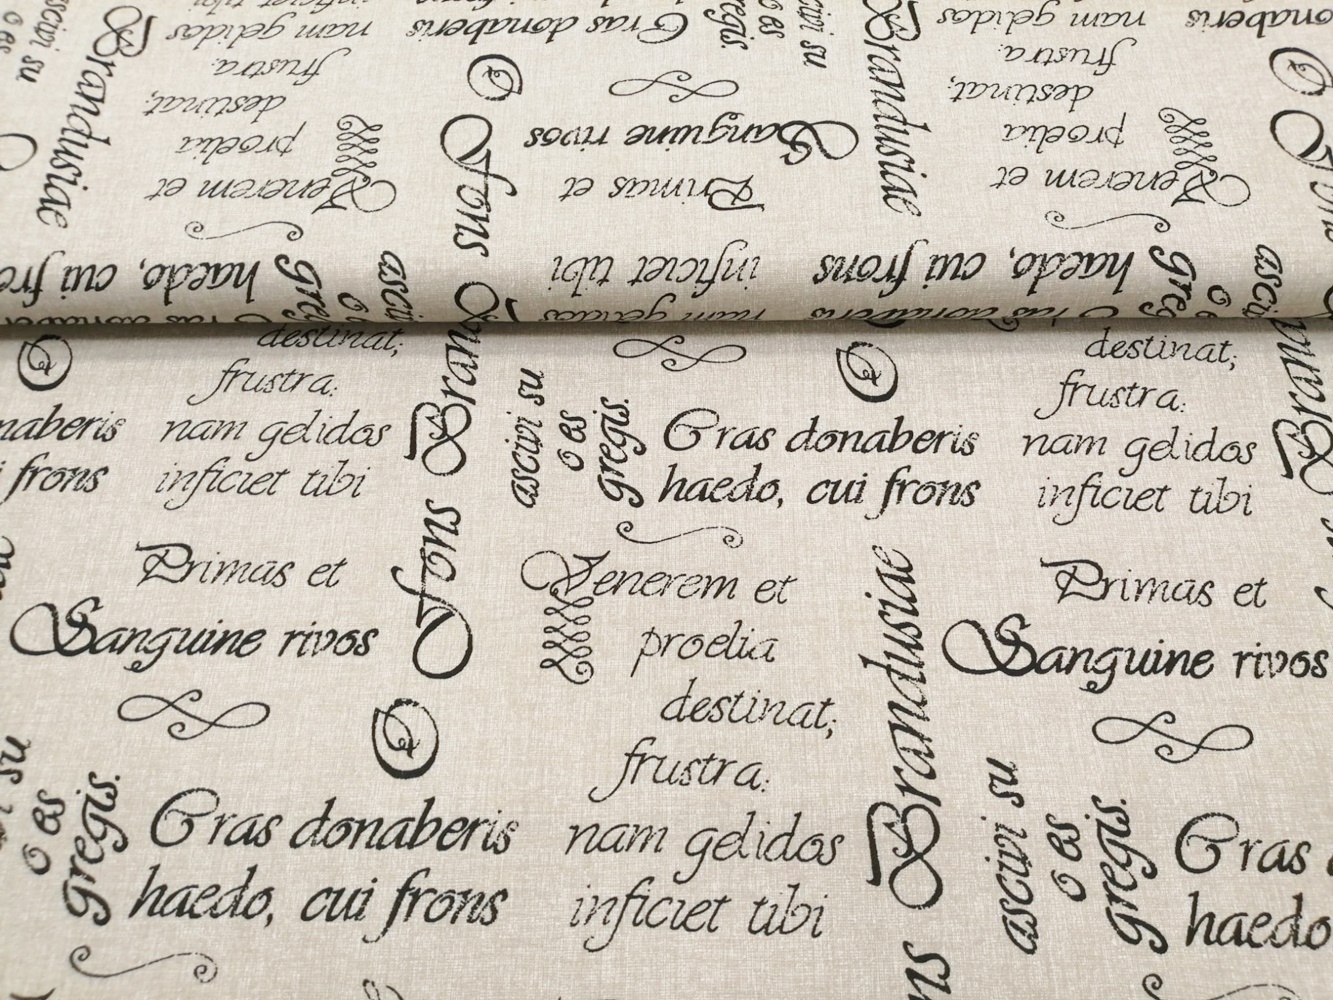 ascivi su
o es
gregis.
Brandusiae
nam gelidos
frustra.
destinat;
proelia
Venerem et
haedo, cui fro
Cras donaberis
O
Fons
Sanguine rivos
Primas et
inficiet tibi
nam gelidos
ascivi su
o es
gregis.
Brandusiae
nam gelidos
frustra.
destinat;
proelia
Venerem et
haedo, cui frons
Cras donaberis
O
donaberis
ascivi
greg
destinat;
frustra.
naberis
nam gelidos
i frons
inficiet tibi
Primas et
Sanguine rivos
Fons Bran
O
ascivi su
o es
gregis.
Cras donaberis
haedo, cui frons
Venerem et
proelia
destinat;
frustra.
nam gelidos
inficiet tibi
O
Brandusiae
destinat;
frustra.
nam gelidos
inficiet tibi
Primas et
Sanguine rivos
su
o es
gregis.
Cras donaberis
haedo, cui frons
ascivi su
o es
gregis.
Cras
haedo
ns